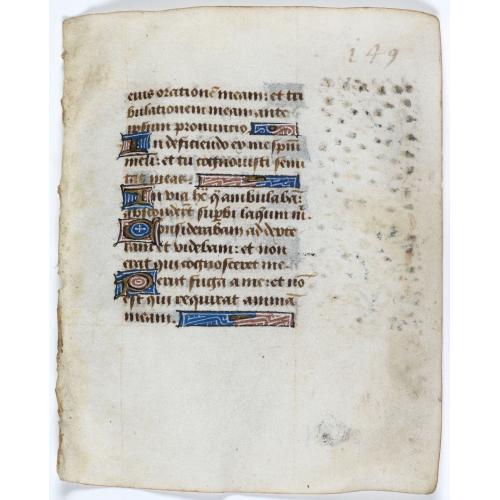 149
eius orationē meam: et tri
bulationem meam ante
ipsum pronuncio.
In deficiendo ex me spm
meū: et tu cognovisti semi
tas meas.
In via hac q̄ ambulabā:
absconderūt supbi laqueū m̄.
Considerabam ad dexte
ram et videbam: et non
erat qui cognosceret me
Periit fuga a me: et nō
est qui requirat animā
meam.